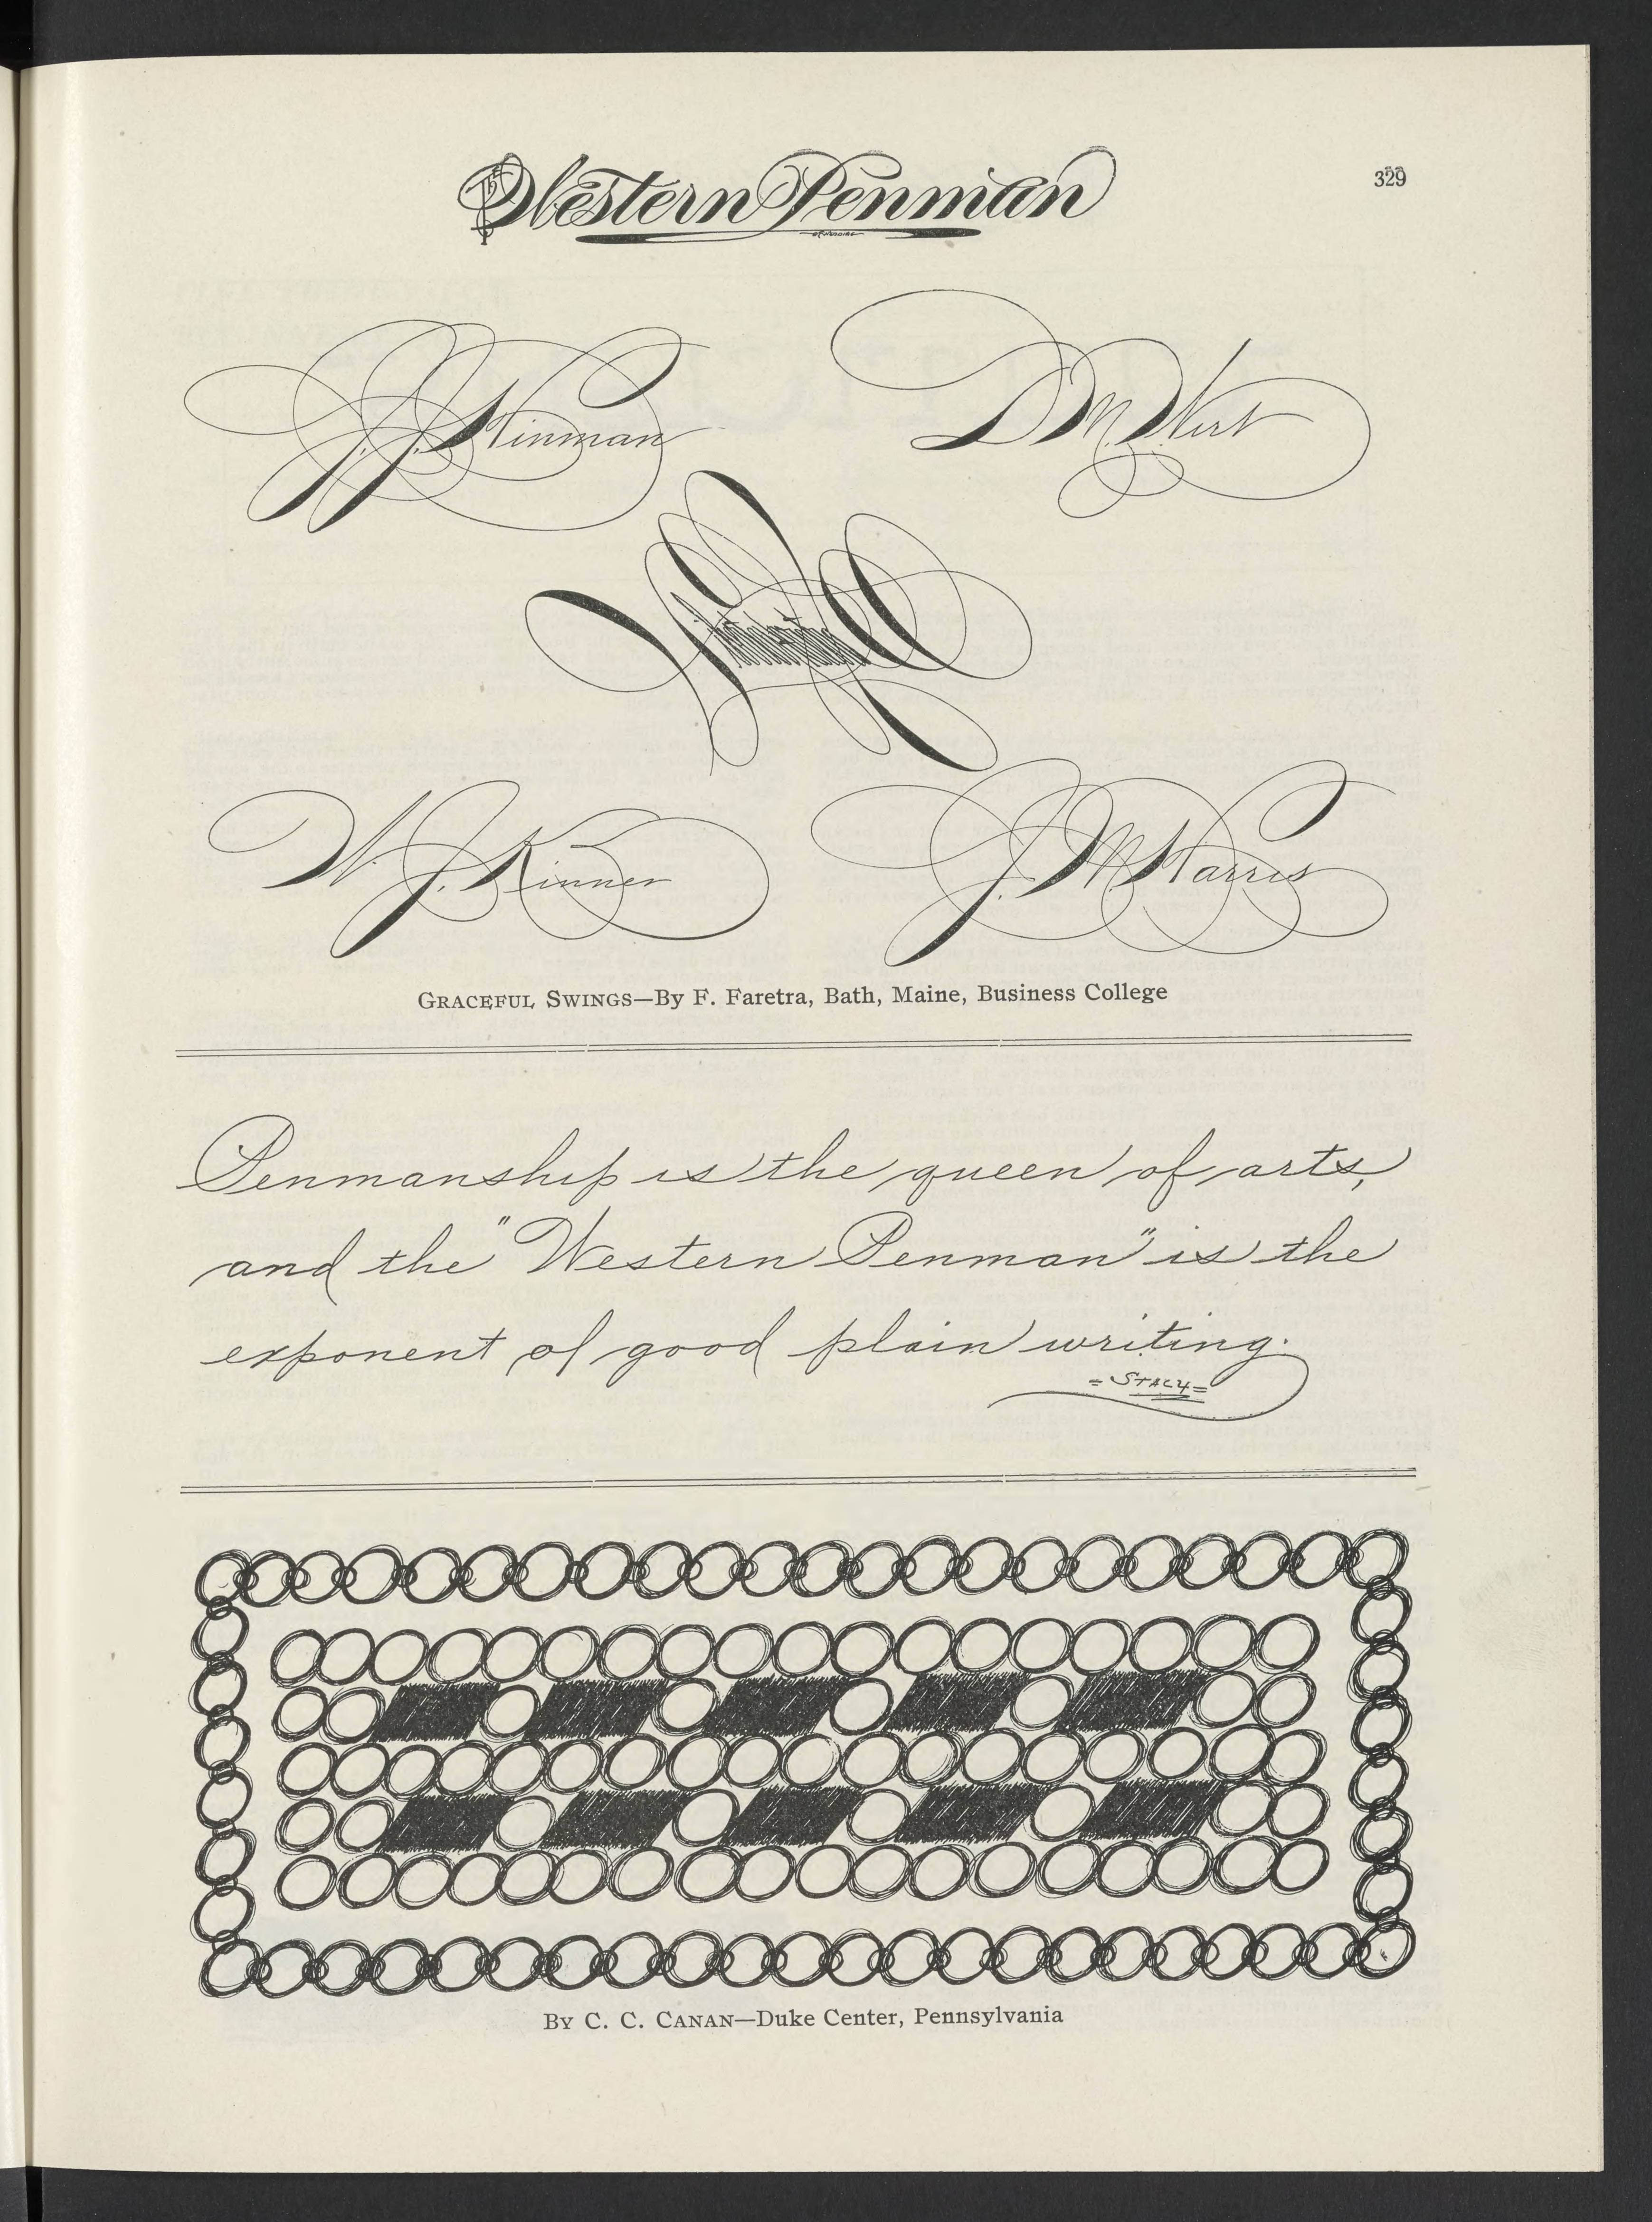 The Western Penman
329
J. J. Hinman
D M. Wert
W. J. Kinner
J. M. Harris
GRACEFUL SWINGS—By F. Faretra, Bath, Maine, Business College
Penmanship is the queen of arts,
and the "Western Penman" is the
exponent of good plain writing.
=STACY=
BY C. C. CANAN—Duke Center, Pennsylvania